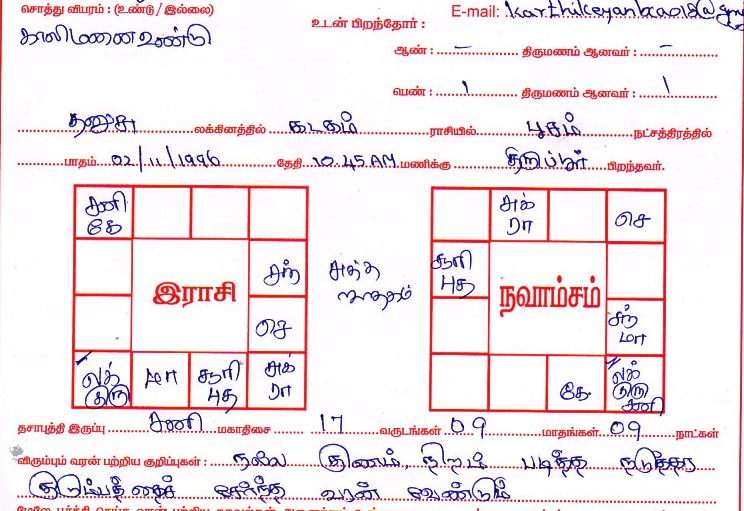 சொத்து விபரம் : (உண்டு / இல்லை)
காலிமனை உண்டு
E-mail: karthikeyanbca018@gm
உடன் பிறந்தோர் :
ஆண் : – திருமணம் ஆனவர் : –
பெண் : 1 திருமணம் ஆனவர் : 1
தனுசு லக்கினத்தில் கடகம் ராசியில் பூசம் நட்சத்திரத்தில்
பாதம் 02/11/1996 தேதி 10.45 AM மணிக்கு திருப்பூர் பிறந்தவர்.
சனி
கே
சந்
செ
லக்
குரு
மா
சூரி
புத
சுக்
ரா
இராசி
சுத்த
ஜாதகம்
சுக்
ரா
செ
சூரி
புத
சந்
மா
கே
லக்
குரு
சனி
நவாம்சம்
தசாபுத்தி இருப்பு சனி மகாதிசை 17 வருடங்கள் 09 மாதங்கள் 09 நாட்கள்
விரும்பும் வரன் பற்றிய குறிப்புகள் : நல்ல குணம், நிறம் படித்த நடுத்தர
குடும்பத்தைச் சேர்ந்த வரன் வேண்டும்